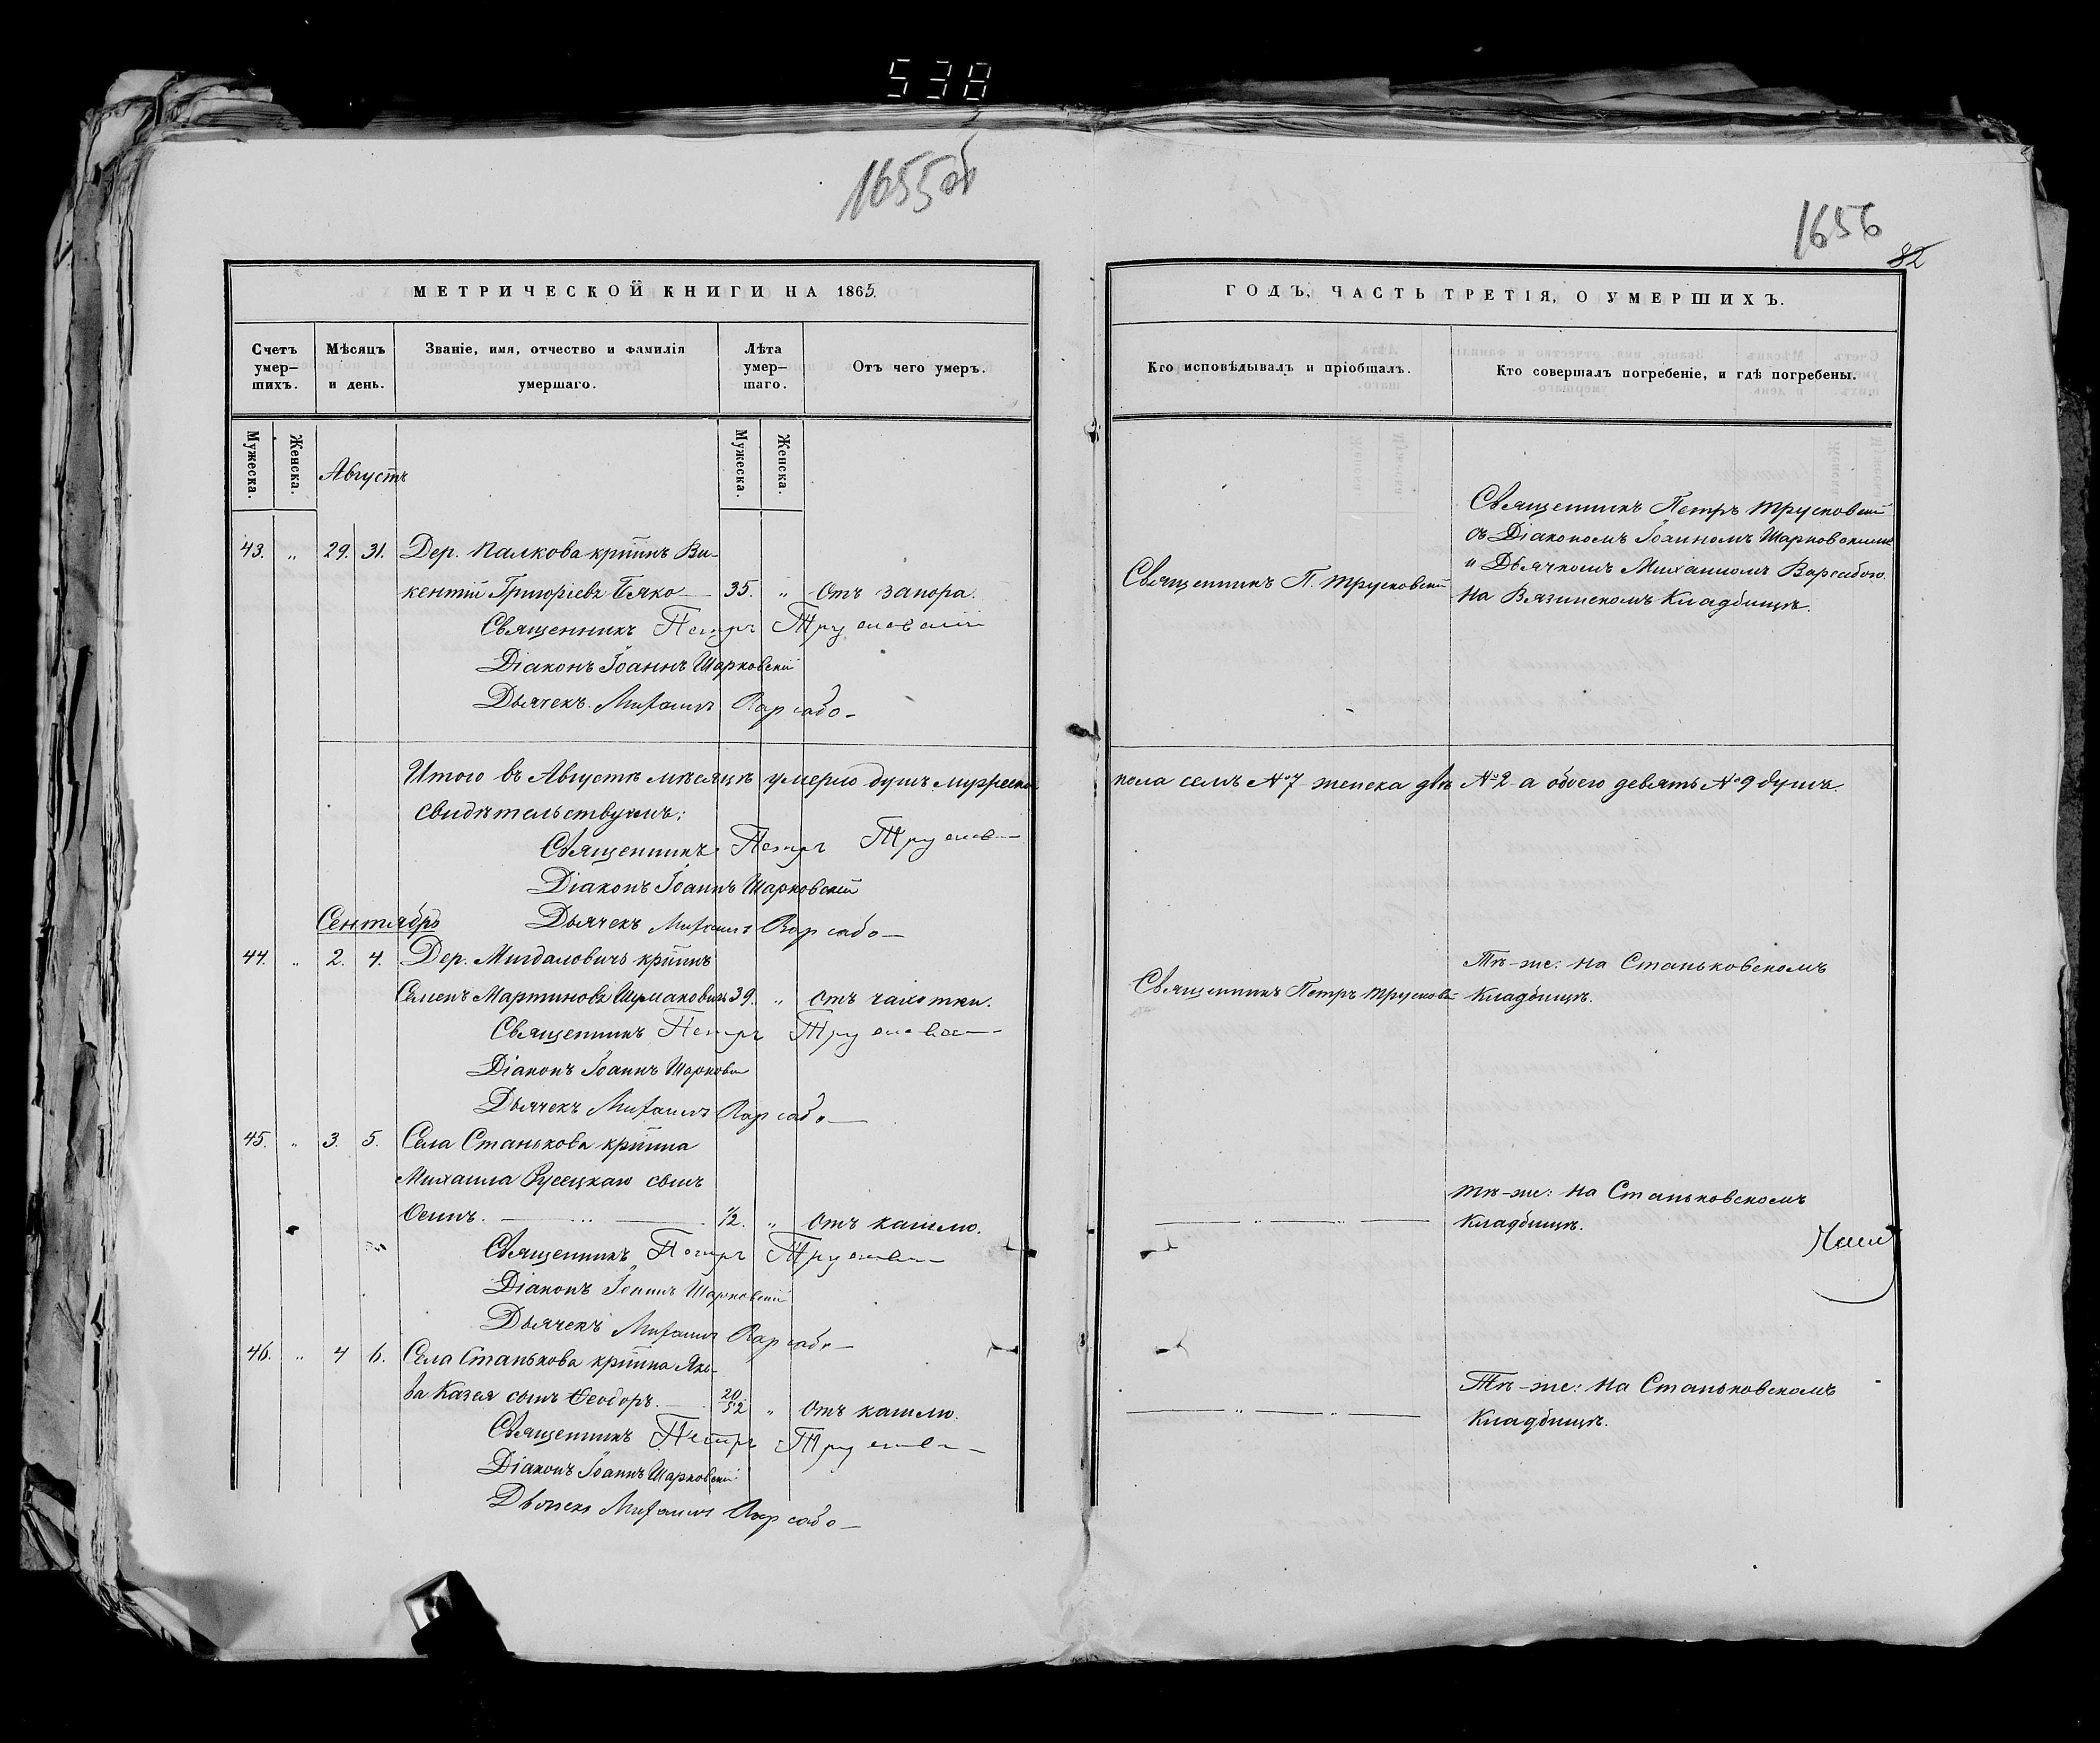 538
1655об
1656
82
МЕТРИЧЕСКОЙ КНИГИ НА 1865.
Счетъ умер-шихъ.
Мѣсяцъ и день.
Званіе, имя, отчество и фамилія умершаго.
Лѣта умер-шаго.
Отъ чего умеръ.
Мужеска.
Женска.
Мужеска.
Женска.
Августъ
43. „ 29. 31. Дер. Палкова кр҃тинъ Ви-
кентій Григоріевъ Бяко — 35. „ Отъ запора.
Священникъ Петръ Трусковскій
Діаконъ Іоаннъ Шарковскій
Дьячекъ Михаилъ Варсабо
Итого въ Августѣ мѣсяцѣ умерло душъ мужеска
свидѣтельствуемъ:
Священникъ Петръ
Діаконъ Іоаннъ Шарковскій
Дьячекъ Михаилъ Варсабо
Сентябрь
44. „ 2. 4. Дер. Мигдаловичъ кр҃тинъ
Семенъ Мартиновъ Шумановичъ 39. „ Отъ чахотки.
Священникъ Петръ
Діаконъ Іоаннъ
Дьячекъ Михаилъ Варсабо
45. „ 3. 5. Села Станькова кр҃тина
Михаила Русецкаго сынъ
Осипъ. — „ — 1/2. „ Отъ кашлю.
Священникъ Петръ
Діаконъ Іоаннъ Шарковскій
Дьячекъ Михаилъ Варсабо
46. „ 4 6. Села Станькова кр҃тина Яко-
ва Казея сынъ Ѳеодоръ. — 20/52 „ Отъ кашлю.
Священникъ Петръ
Діаконъ Іоаннъ Шарковскій
Дьячекъ Михаилъ Варсабо
ГОДЪ, ЧАСТЬ ТРЕТІЯ, О УМЕРШИХЪ.
Кто исповѣдывалъ и пріобщалъ.
Кто совершалъ погребеніе, и гдѣ погребены.
Священникъ П. Трусковскій
Священникъ Петръ Трусковскій
съ Діакономъ Іоанномъ Шарковскимъ
и Дьячкомъ Михаиломъ Варсабою.
на Вязинскомъ Кладбищѣ.
пола семь №7 женска двѣ №2 а обоего девять №9 душъ.
Священникъ Петръ
Тѣ-же: на Станьковскомъ
Кладбищѣ.
— „ — „ —
тѣ-же: на Станьковскомъ
Кладбищѣ.
— „ — „ —
Тѣ-же: на Станьковскомъ
Кладбищѣ.